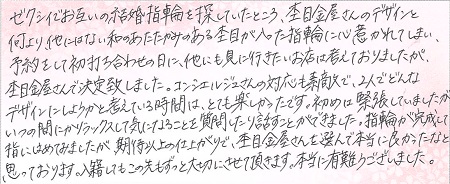 ゼクシィでお互いの結婚指輪を探していたところ、杢目金屋さんのデザインと
何より他にはない和のあたたかみのある杢目が入った指輪に心惹かれてしまい、
予約をして初打ち合わせの日に、他にも見に行きたいお店は考えておりましたが、
杢目金屋さんで決定致しました。コンシェルジュさんの対応も素敵で、2人でどんな
デザインにしようかと考えている時間は、とても楽しかったです。初めは緊張していましたが
いつの間にかリラックスして気になることを質問したり話すことができました。指輪が完成して
指にはめてみましたが期待以上の仕上がりで、杢目金屋さんを選んで本当に良かったなと
思っております。入籍してもこの先もずっと大切にさせて頂きます。本当に有難うございました。